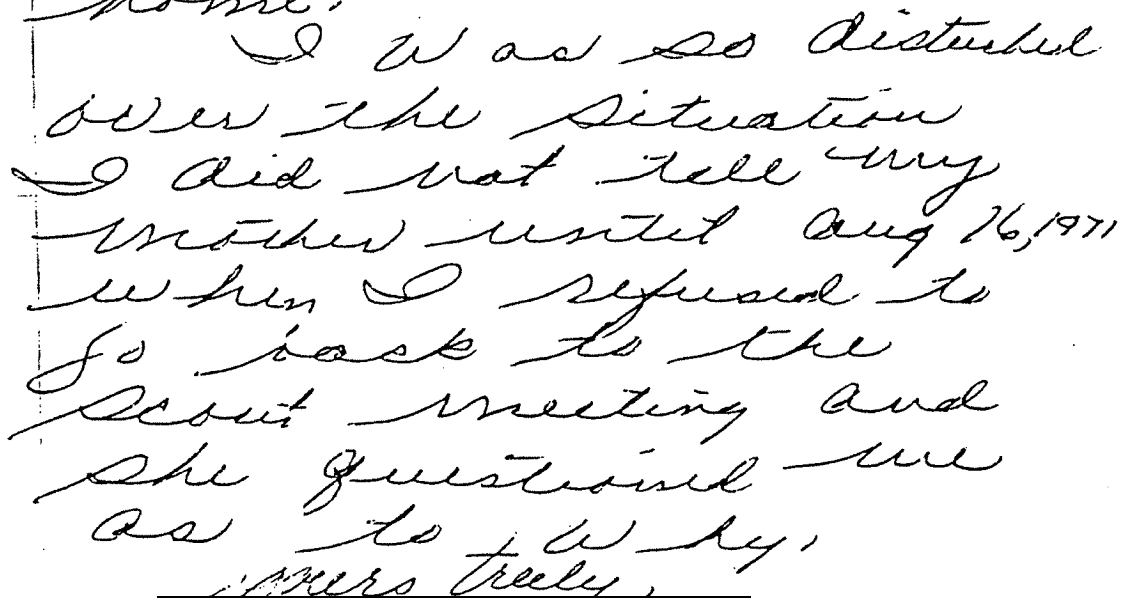 home.
I was so disturbed
over the situation
I did not tell my
mother until Aug 16, 1971
when I refused to
go back to the
Scout meeting and
she questioned me
as to why.
yours truly,